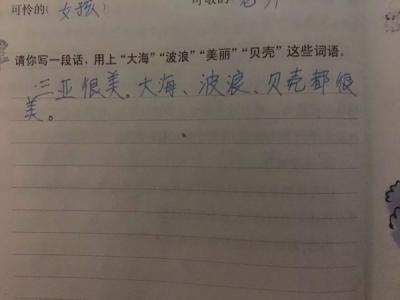 可怜的（女孩）
请你写一段话，用上“大海”“波浪”“美丽”“贝壳”这些词语。
三亚很美。大海、波浪、贝壳都很
美。